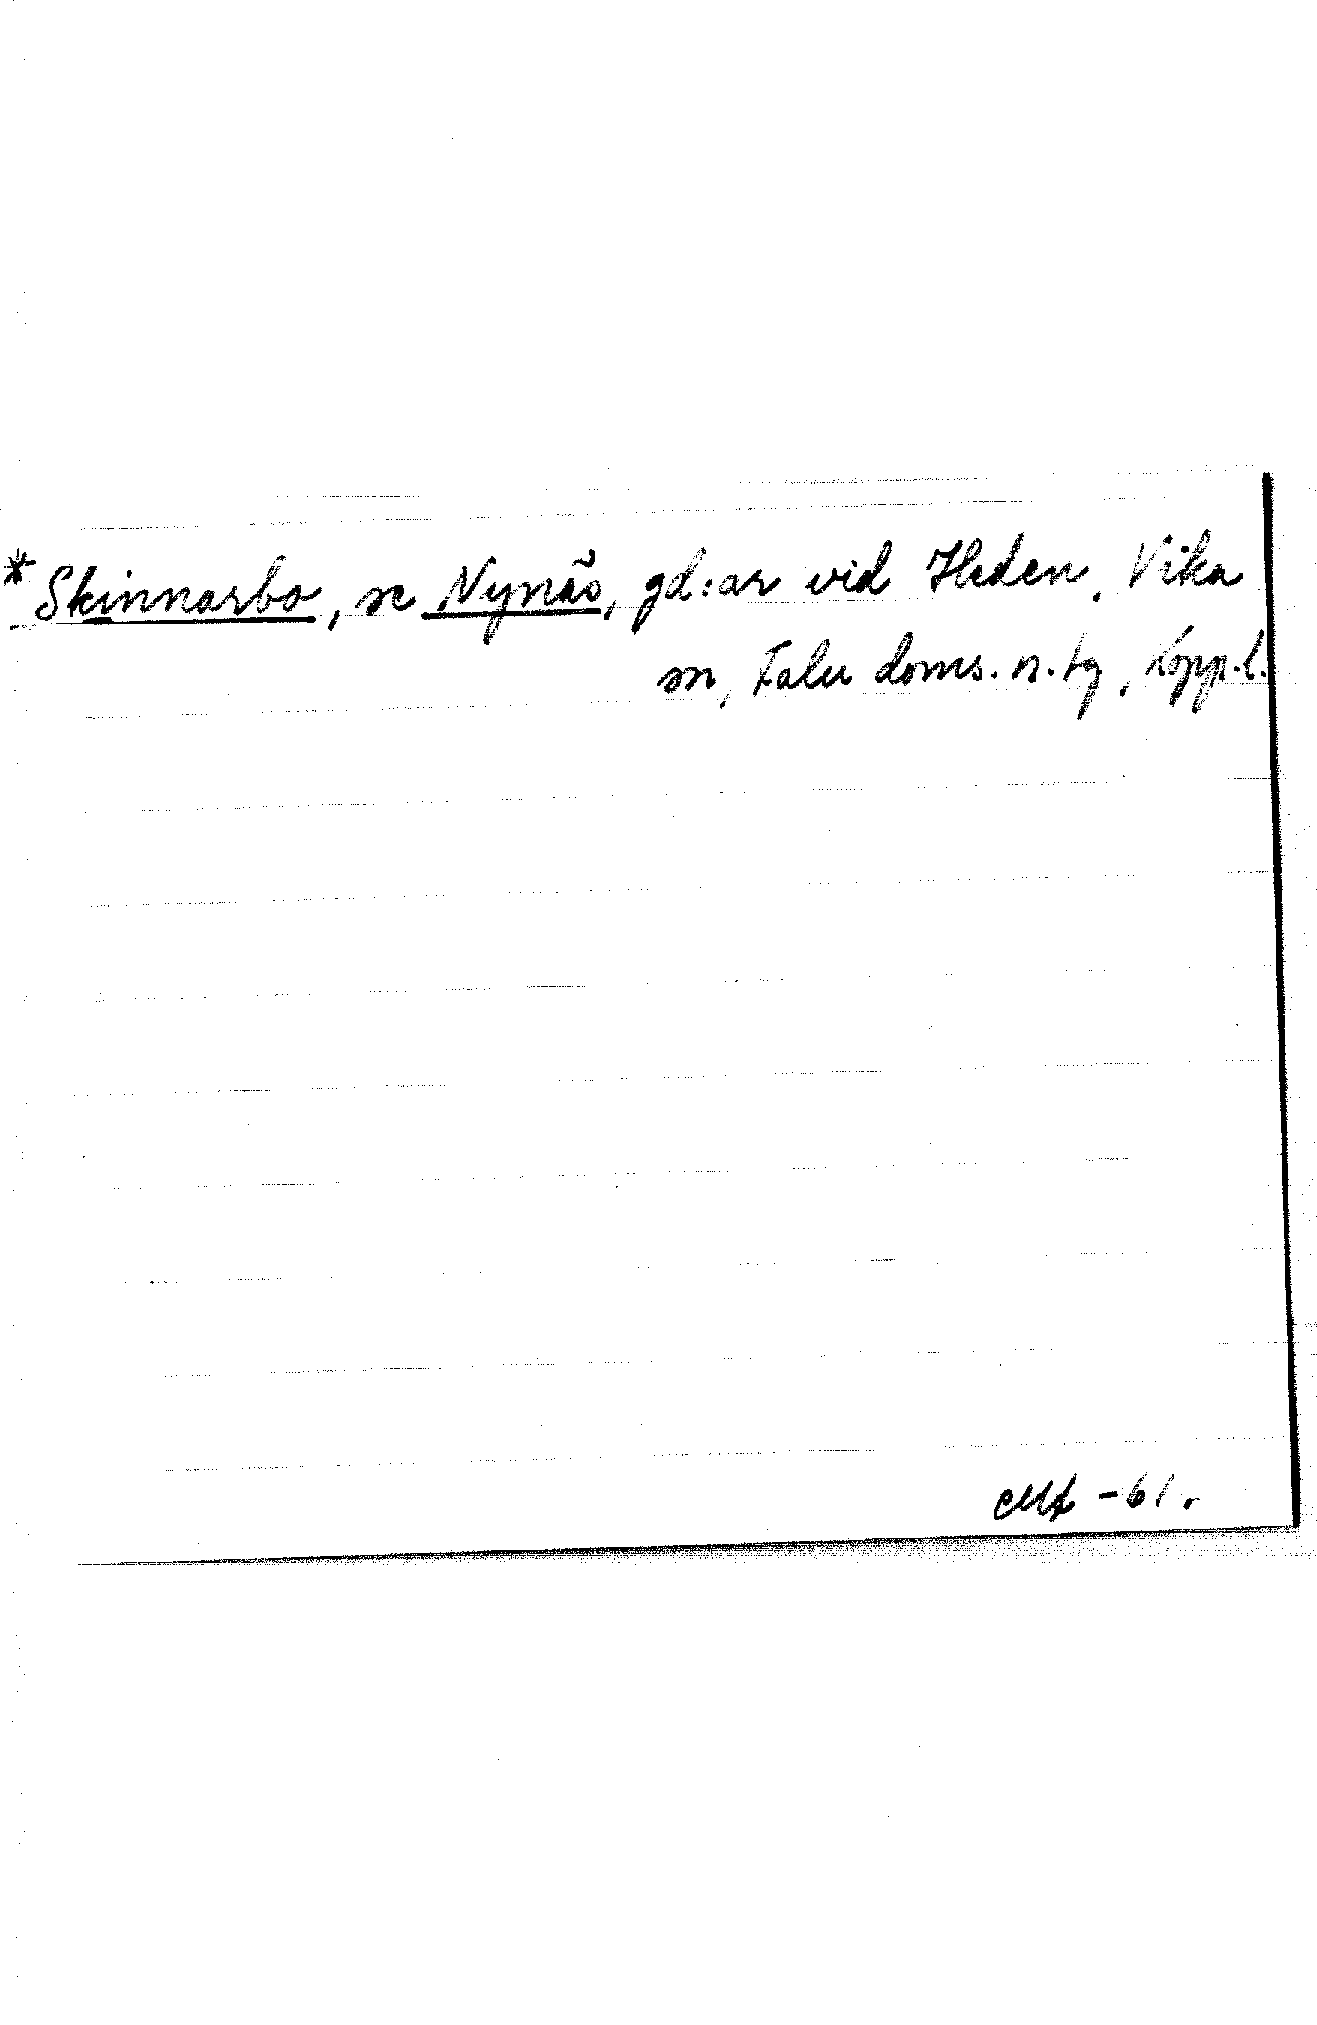 * Skinnarbo, se Nynäs, gd:ar vid Heden, Vika
sn, Falu doms. n. tg, Kopp. l.
-61.